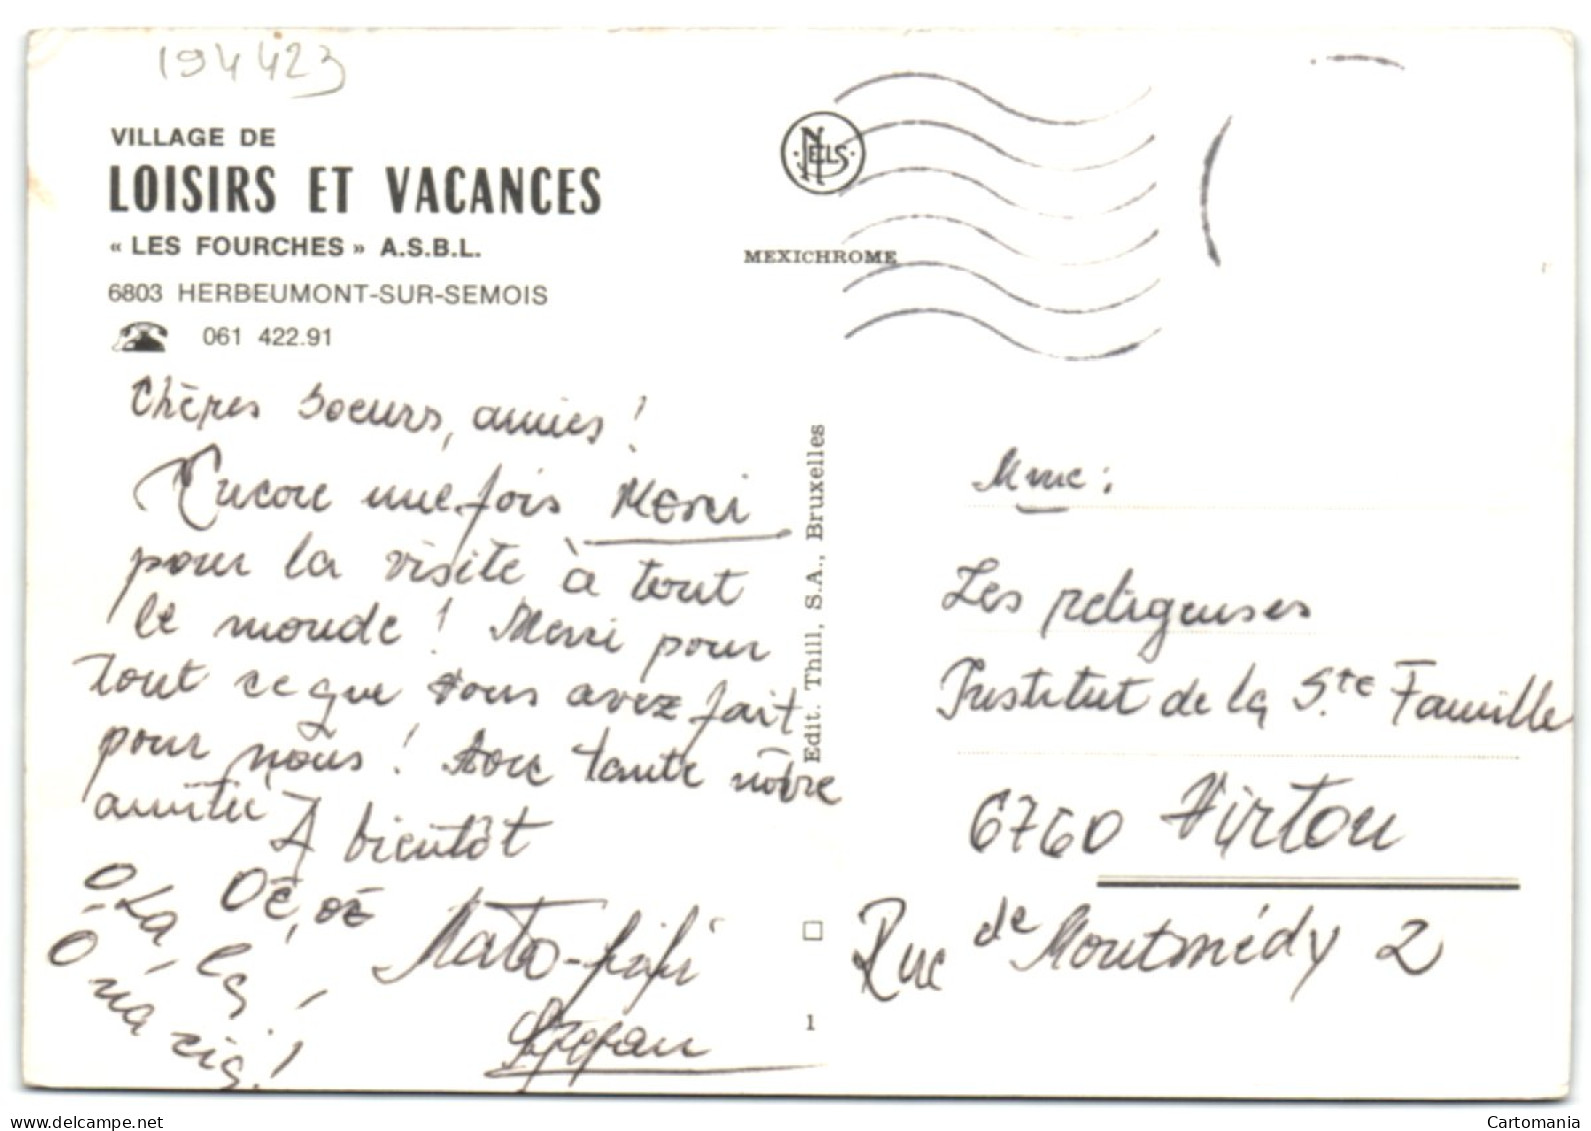 194423
VILLAGE DE
LOISIRS ET VACANCES
« LES FOURCHES » A.S.B.L.
6803 HERBEUMONT-SUR-SEMOIS
061 422.91
NELS
MEXICHROME
Chères soeurs, amies !
Encore une fois Merci
pour la visite à tout
le monde ! Merci pour
tout ce que vous avez fait
pour nous ! Avec toute nôtre
amitié A bientôt
Oé, oé
O La la
O
Stefan
Edit. Thill, S.A., Bruxelles
1
Mme :
Les religeuses
Institut de la Ste Famille
6760 Virton
Rue de Montmédy 2
Cartomania